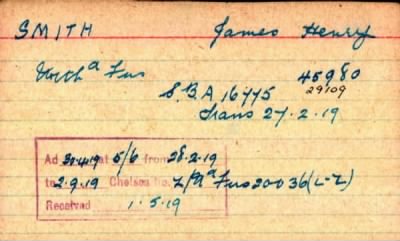 SMITH James Henry
Northd Fus 45980
29109
S.B.A 16775
Trans 27.2.19
Ad 30.4.19 at 5/6 from 28.2.19
to 2.9.19 Chelsea No. Z/Nd Fus 20036 (L-Z)
Received 1.5.19